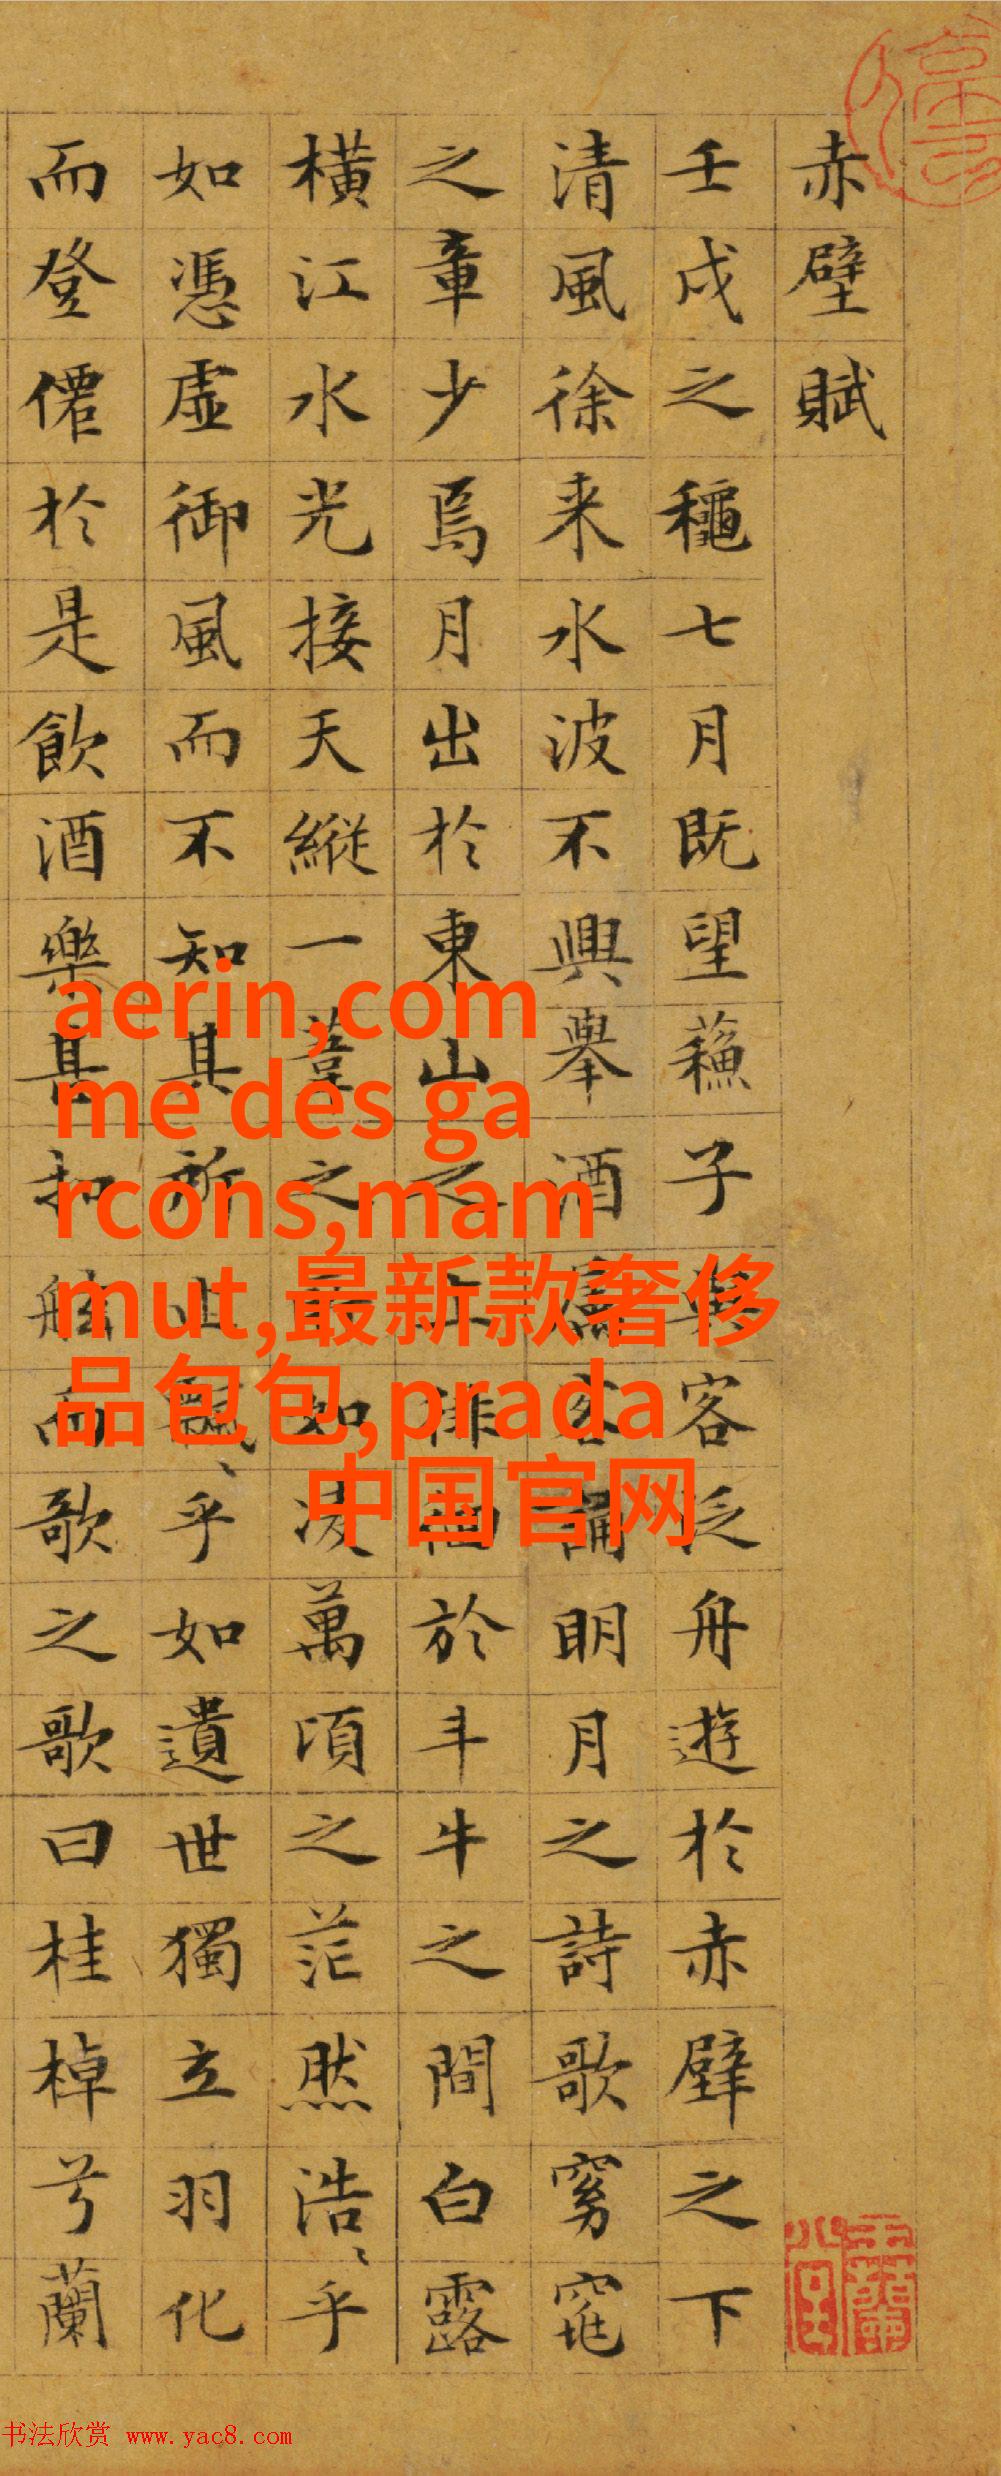 赤壁賦
壬戌之穐七月既望蘓子與客泛舟遊於赤壁之下
清風徐来水波不興舉酒屬客誦明月之詩歌窈窕
之章少焉月出於東山之上徘徊於斗牛之間白露
橫江水光接天縱一葦之所如凌萬頃之茫然浩〻乎
如憑虛御風而不知其所止飄〻乎如遺世獨立羽化
而登僊於是飲酒樂甚扣舷而歌之歌曰桂棹兮蘭
aerin,com
me des ga
rcons,mam
mut,最新款奢侈
品包包,prada
中国官网
书法欣赏 www.yac8.com